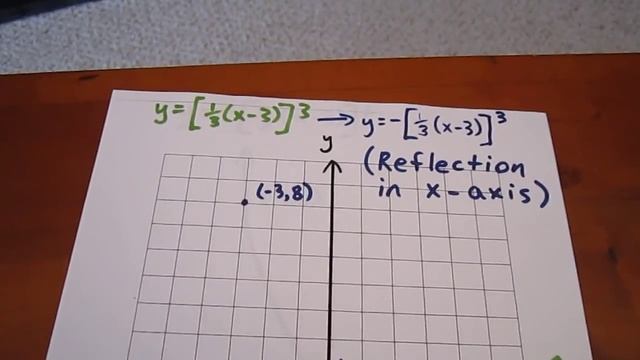 y = [⅓(x-3)]³ → y = -[⅓(x-3)]³
(Reflection
in x-axis)
y
(-3,8)